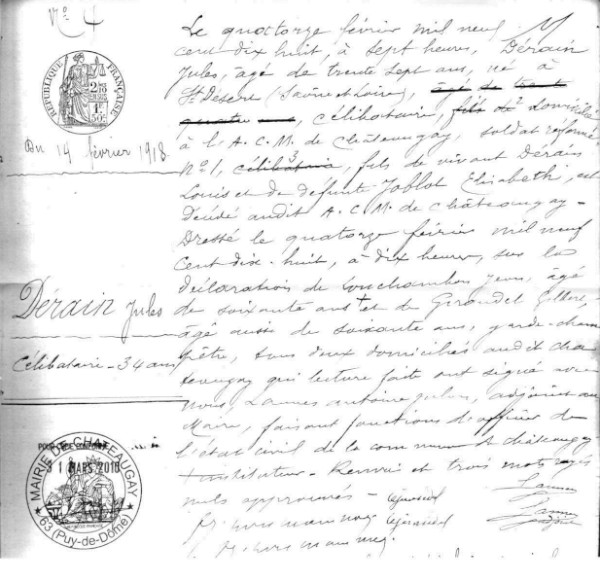 No 4
RÉPUBLIQUE FRANÇAISE
Du 14 février 1918
Dérain Jules
Célibataire - 34 ans
MAIRIE DE CHATEAUGAY
31 MARS 2010
63 (Puy-de-Dôme)
Le quatorze février mil neuf
cent dix huit, à sept heures, Dérain
Jules, âgé de trente sept ans, né à
St Désert (Saône et Loire), âgé de trente
quatre ans, célibataire, fils de domicilié
à l'A.C.M. de Châteaugay, soldat réformé
No 1, célibataire, fils de vivant Dérain
Louis et de défunte Joblot Elisabeth, est
décédé audit A.C.M. de Châteaugay -
Dressé le quatorze février mil neuf
cent dix-huit, à dix heures, sur la
déclaration de Jean, âgé
de soixante ans + et de Girondel Gilbert,
âgé aussi de soixante ans, garde-cham
pêtre, tous deux domiciliés audit cha
teaugay qui lecture faite ont signé avec
nous, Lannes Antoine, adjoint au
Maire, faisant fonctions d'officier de
l'état civil de la commune de châteaugay
+ instituteur - Renvoi et trois mots rayés
nuls approuvés -